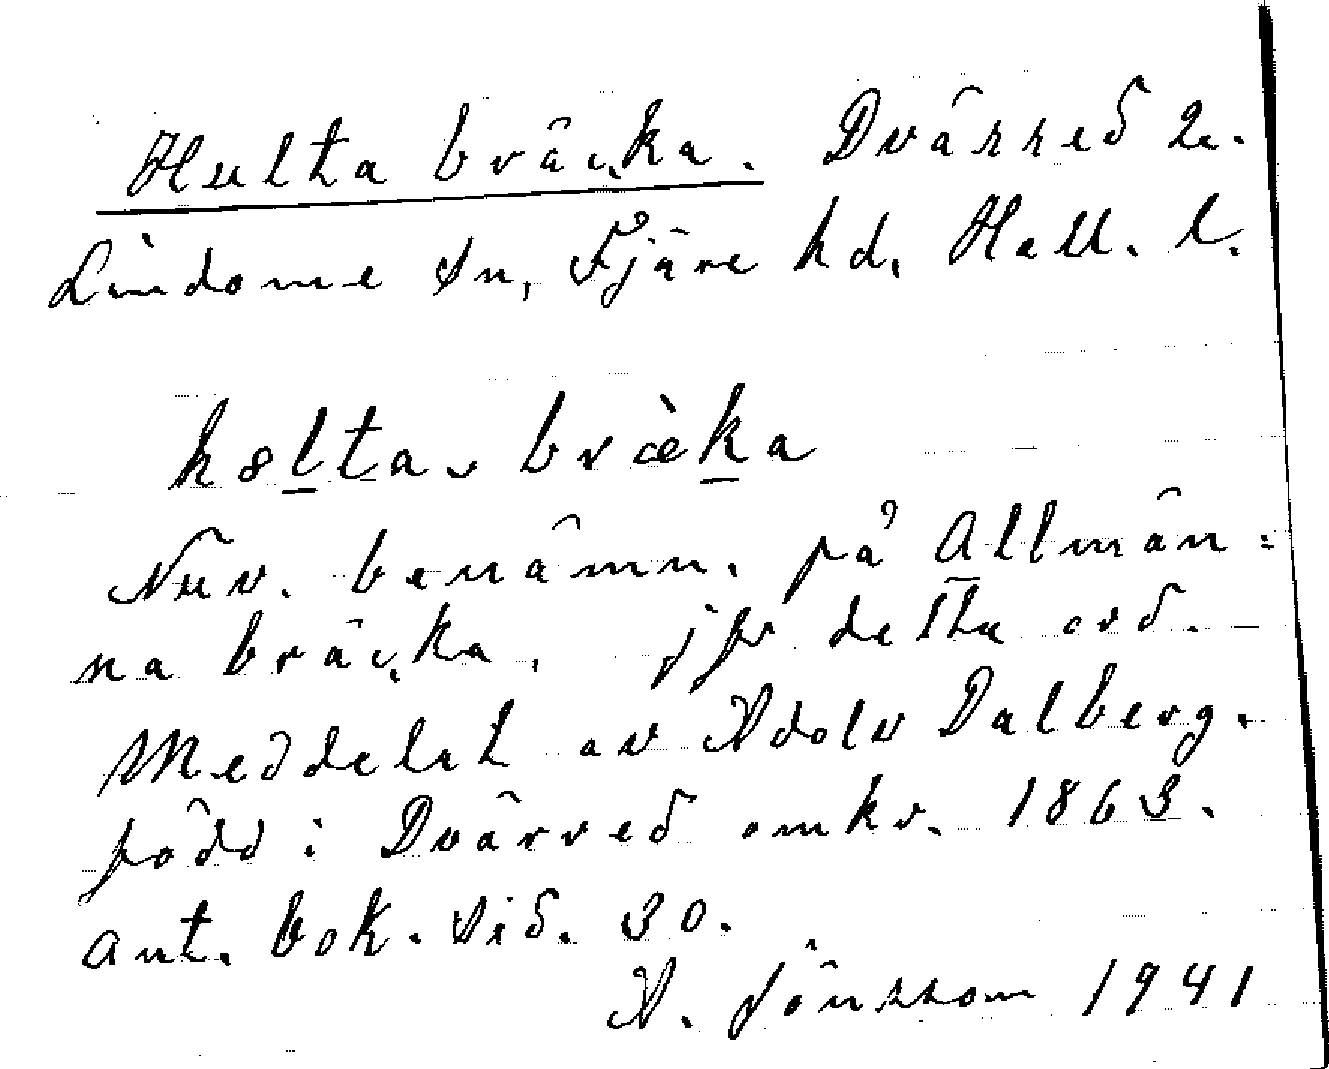 Hulta bräcka. Dvärred 2.
Lindome sn, Fjäre hd, Hall. l.
h8lta, bræ̀ka
Nuv. benämn. på Allmän=
na bräcka, jfr detta ord.
Meddelat av Adolv Dalberg.
född i Dvärred omkr. 1863.
ant. bok. sid. 30.
A. Jönsson 1941